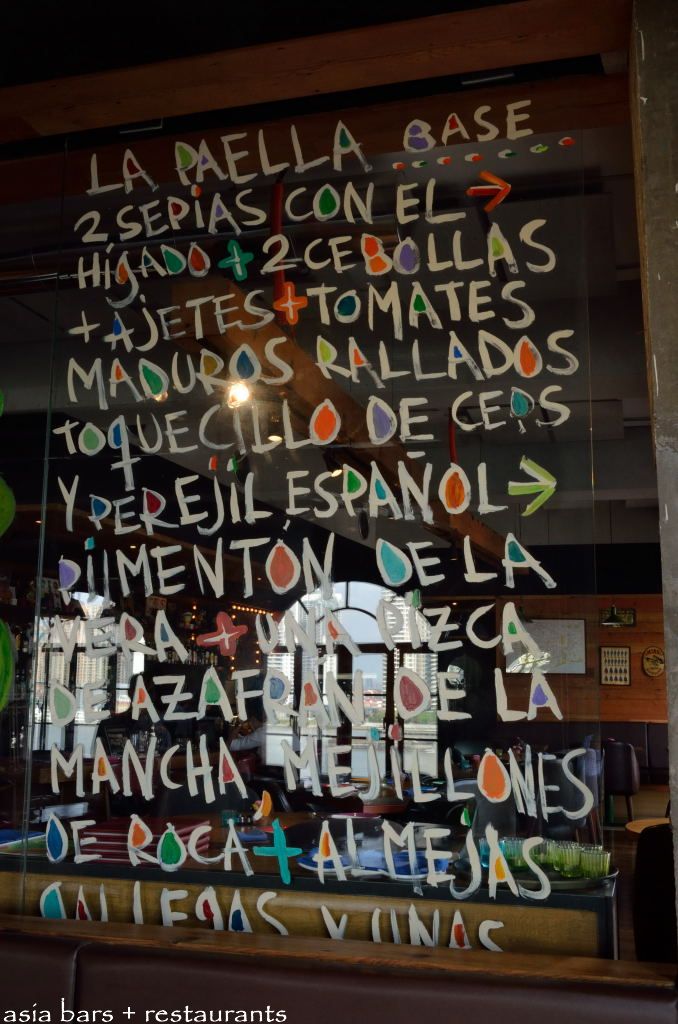 LA PAELLA BASE
2 SEPIAS CON EL →
HíGADO + 2 CEBOLLAS
+ AJETES + TOMATES
MADUROS RALLADOS
TOQUECILLO DE CEPS
+
Y PEREJIL ESPAÑOL →
PIMENTÓN DE LA
VERA + UNA PIZCA
DE AZAFRÁN DE LA
MANCHA, MEJILLONES
DE ROCA + ALMEJAS
GALLEGAS Y UNAS
asia bars + restaurants